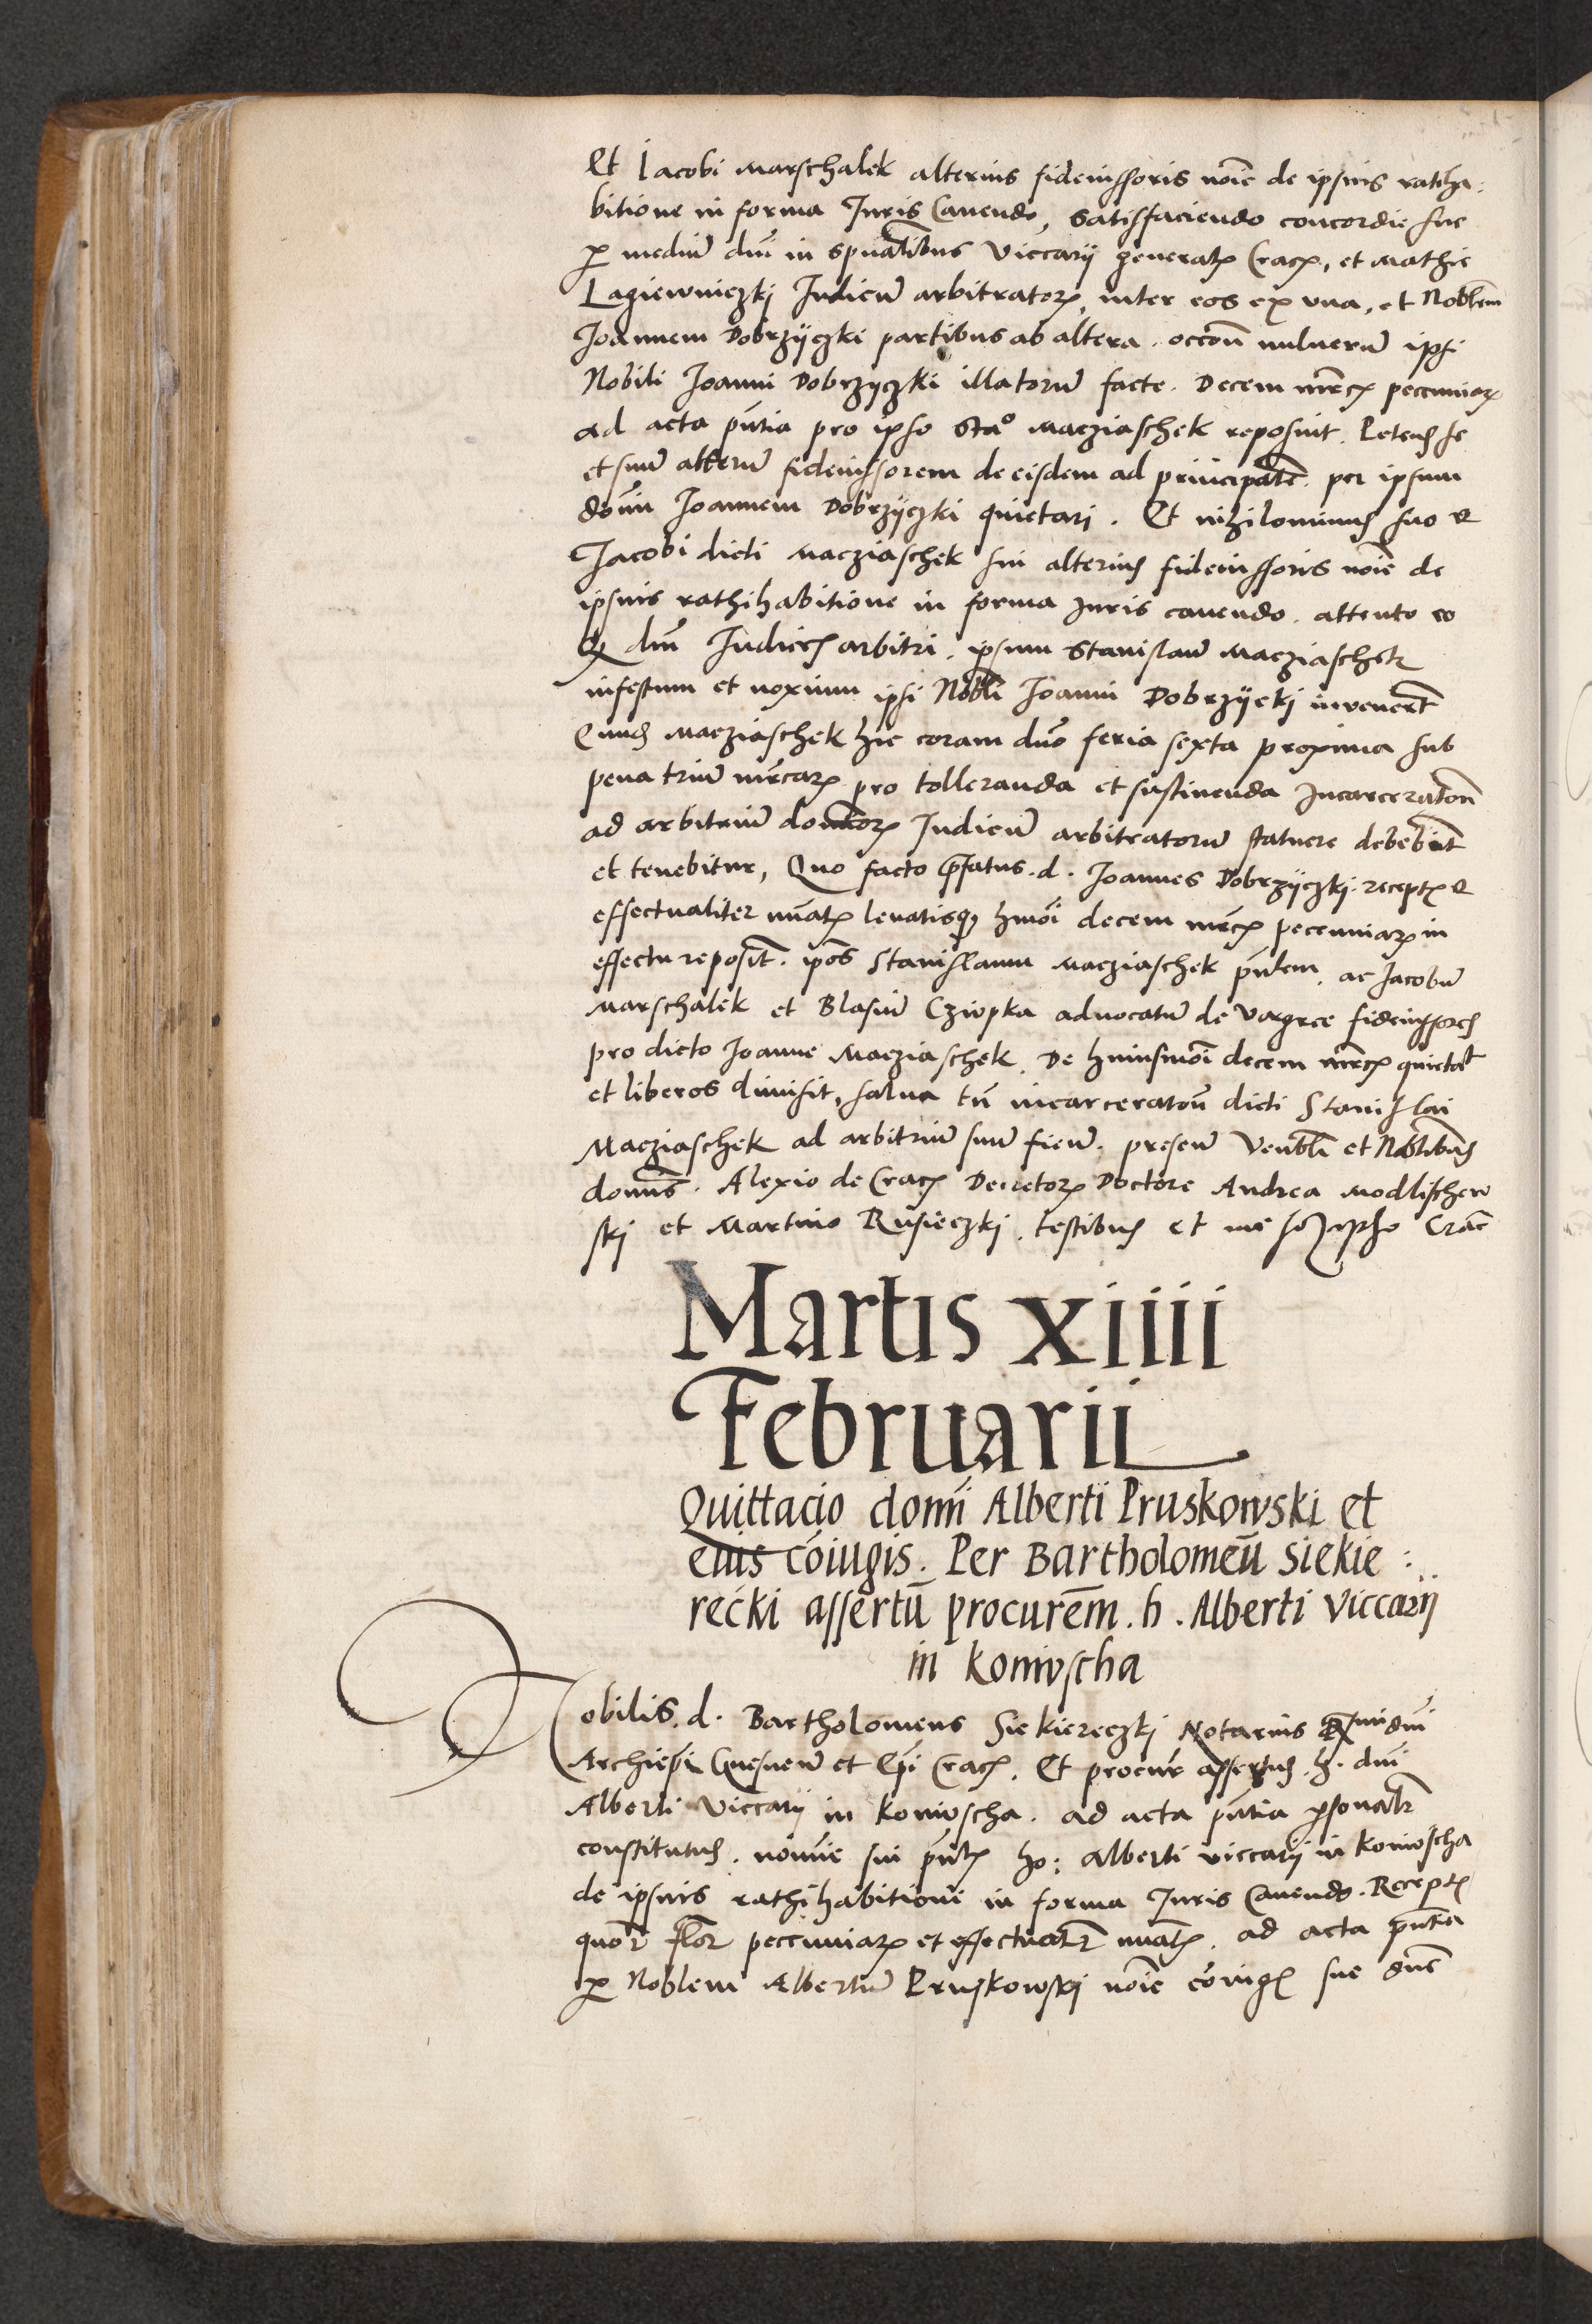 Et Jacobi Marschalek alterius fideiussoris noīe de ipsius ratiha:
bitione in forma Juris Cavendo, satisfaciendo concordie sue
ꝑ mediū dnī in spūalibus Viccarij generalꝭ Cracꝭ, et Mathie
Lagiewniczkj Judicū arbitratorꝝ, inter eos ex una, et Noblem
Joannem Dobrzyczki partibus ab altera. occōne vulnerū ipsi
Nobili Joanni Dobrzyczki illatorū facte. Decem mrcꝭ pecuniarꝝ
ad acta pn̄tia pro ipso Stao Macziaschek reposuit. Petens se
et suū alterū fideiussorem de eisdem ad principalē per ipsum
domī Joannem Dobrzyczki quietari. Et nihilominus suo et
Jacobi dicti Macziaschek sui alterius fideiussoris noīe de
ipsius rathihabitione in forma Juris cavendo. attento eo
qꝫ dnī Judices arbitri. ipsum Stanislaū Macziaschek
infestum et noxium ipsi Nobli Joanni Dobrzyckj invenerūt
Quiquidem Macziaschek hic coram dnō feria sexta proxima sub
pena triū mrcarꝝ pro tolleranda et sustinenda Incarceratōne
ad arbitriū dominorꝝ Judicū arbitratorum statuere debebit
et tenebitur, Quo facto p̄fatus. d. Joannes Dobrzyczki. receptꝭ et
effectualiter nūatꝭ levatisqꝫ hmōi decem mrcꝭ pecuniarꝝ in
effectu repositꝭ. ipōs Stanislaum Macziaschek pn̄tem. ac Jacobū
Marschalek et Blasiū Cziopka advocatū de Vargrce fideiussores
pro dicto Joanne Macziaschek. De huiusmōi decem mrcꝭ quietavit
et liberos dimisit, salva tn̄ incarceratōne dicti Stanislai
Macziaschek ad arbitriū suū fiend. presen̄ Venbli et Noblibus
domīs. Alexio de Cracꝭ Decretorꝝ Doctore Andrea Modlischew
skj et Martino Rusieczkj. testibus et me Josepho Crac
Martis xiiii
Februarii
Quittacio domī Alberti Pruskowski et
eius cōiugis. Per Bartholomeū Siekie:
recki assertū procurēm. h. Alberti Viccarij
in Koniuscha
Nobilis. d. Bartholomeus Siekiereczkj Notarius Rmi dnī
Archiepī Gnesnen̄ et Epī Cracꝭ. Et procur assertus. h. dnī
Alberti Viccarij in Koniuscha. ad acta pn̄tia ꝑsonalr
constitutus. nomīe sui pn̄lꝭ ho: Alberti viccarij in Koniuscha
de ipsius rathihabitione in forma Juris Cavendo. Receptꝭ
quōr flor pecuniarꝝ et effectualr nūatꝭ. ad acta pn̄tia
ꝑ Noblem Albertū Pruskowskj noīe cōiugꝭ sue